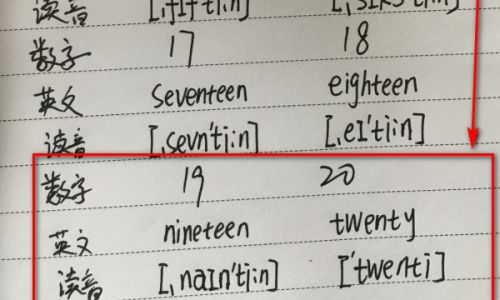 读音 [ˌfɪfˈtiːn] [ˌsɪksˈtiːn]
数字 17 18
英文 seventeen eighteen
读音 [ˌsevnˈtiːn] [ˌeɪˈtiːn]
数字 19 20
英文 nineteen twenty
读音 [ˌnaɪnˈtiːn] [ˈtwenti]